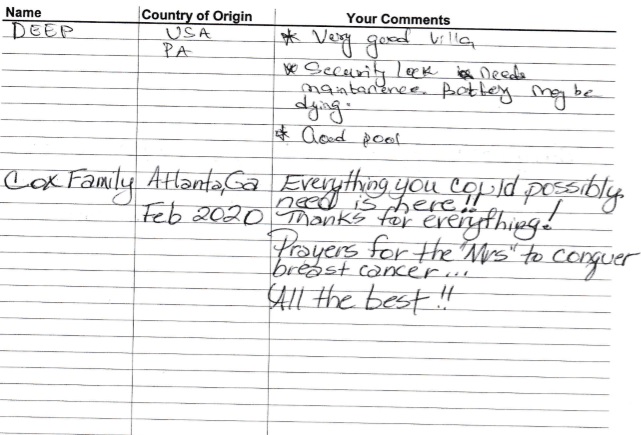 Name Country of Origin Your Comments
DEEP USA * Very good Villa
PA
* Security lock needs
maintanence. Battery may be
dying.
* Good pool
Cox Family Atlanta, Ga Everything you could possibly
need is here!!
Feb 2020 Thanks for everything!
Prayers for the "Mrs" to conquer
breast cancer...
All the best!!